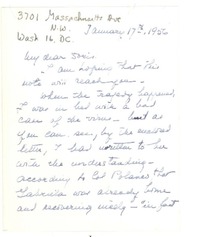 3701 Massachusetts Ave
N.W.
Wash 16, DC.
January 17th, 1956
My dear
I am hoping that this
note will reach you
when the tragedy happened,
I was in bed with a bad
case of the virus - but as
you can see, by the
letter, I had written to her
with the understanding -
according to Col that
Gabrielle was already home
and recovering nicely - In fact